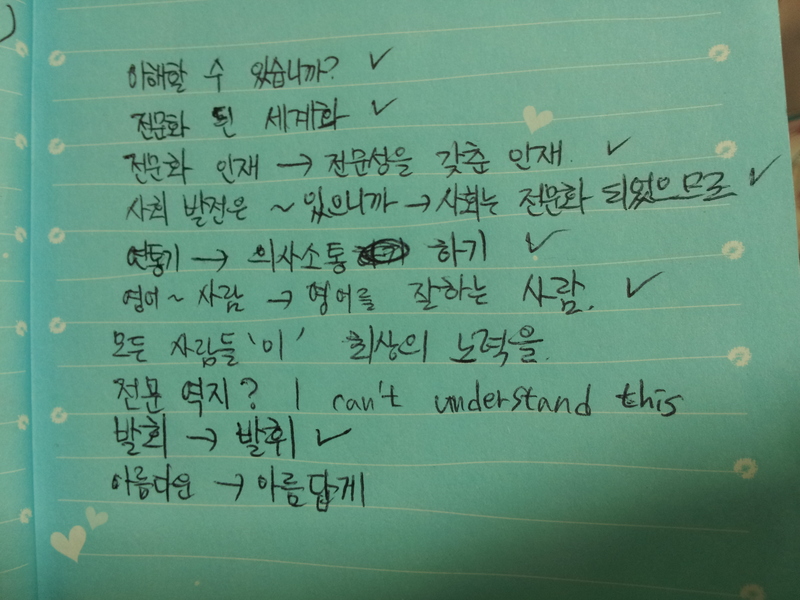 이해할 수 있습니까? ✓
전문화 된 세계화 ✓
전문화 인재 → 전문성을 갖춘 인재. ✓
사회 발전은 ~ 있으니까 → 사회는 전문화 되었으므로 ✓
→ 의사소통 하기 ✓
영어 ~ 사람 → 영어를 잘하는 사람. ✓
모든 사람들 '이' 최상의 노력을.
전문 역지? I can't understand this
발회 → 발휘 ✓
아름다운 → 아름답게